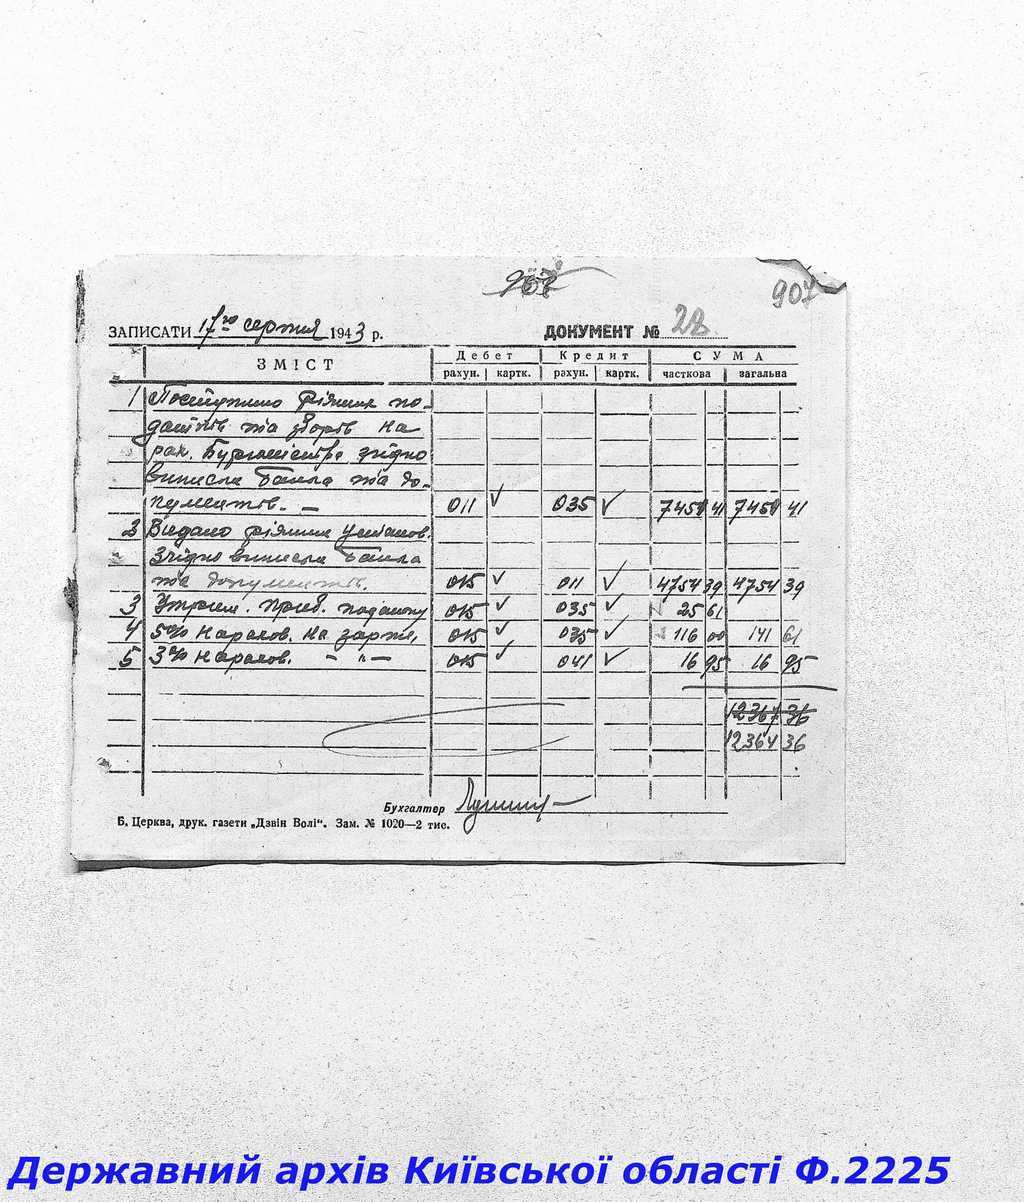 907
ЗАПИСАТИ 17го серпня 1943 р.
ДОКУМЕНТ № 28
ЗМІСТ Дебет Кредит СУМА
рахун. картк. рахун. картк. часткова загальна
1 Поступило різних по-
датків та зборів на
рах. Бургомістра згідно
виписки Банка та до-
кументів. — 011 035 7451 41 7451 41
2 Видано різним установ.
Згідно виписки Банка
та документів. 015 011 4754 39 4754 39
3 Утрим. приб. податку 015 035 25 61
4 5% Нарахов. на зарпл. 015 035 116 00 141 61
5 3% Нарахов. – „ – 015 041 16 95 16 95
12367 36
12364 36
Бухгалтер
Б. Церква, друк. газети „Дзвін Волі“. Зам. № 1020—2 тис.
Державний архів Київської області Ф.2225